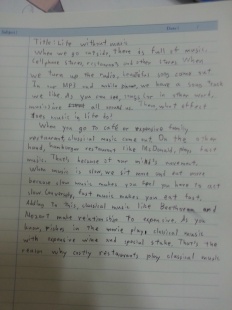 Title: Life without music
When we go outside, there is full of music.
Cellphone stores, restaurants and other stores. When
we turn up the radio, come out.
In our MP3 and we have a song that
we like. As you can see, in other word,
music what effect
does music in like by!
When you go to cafe or expensive family
restaurant classical music come out. On the other
hand, hamburger restaurant like McDonald, they
music. That's because of our movement.
When music is slow, we sit more and eat more
because slow music makes you feel you have to eat
slow. Contrary, fast music makes you eat fast.
Adding to this, classical music like Beethoven and
Mozart make relationship to expensive. As you
know, riches in the movie plays classical music
with expensive wine and special steak. That's the
reason why costly restaurants play classical music